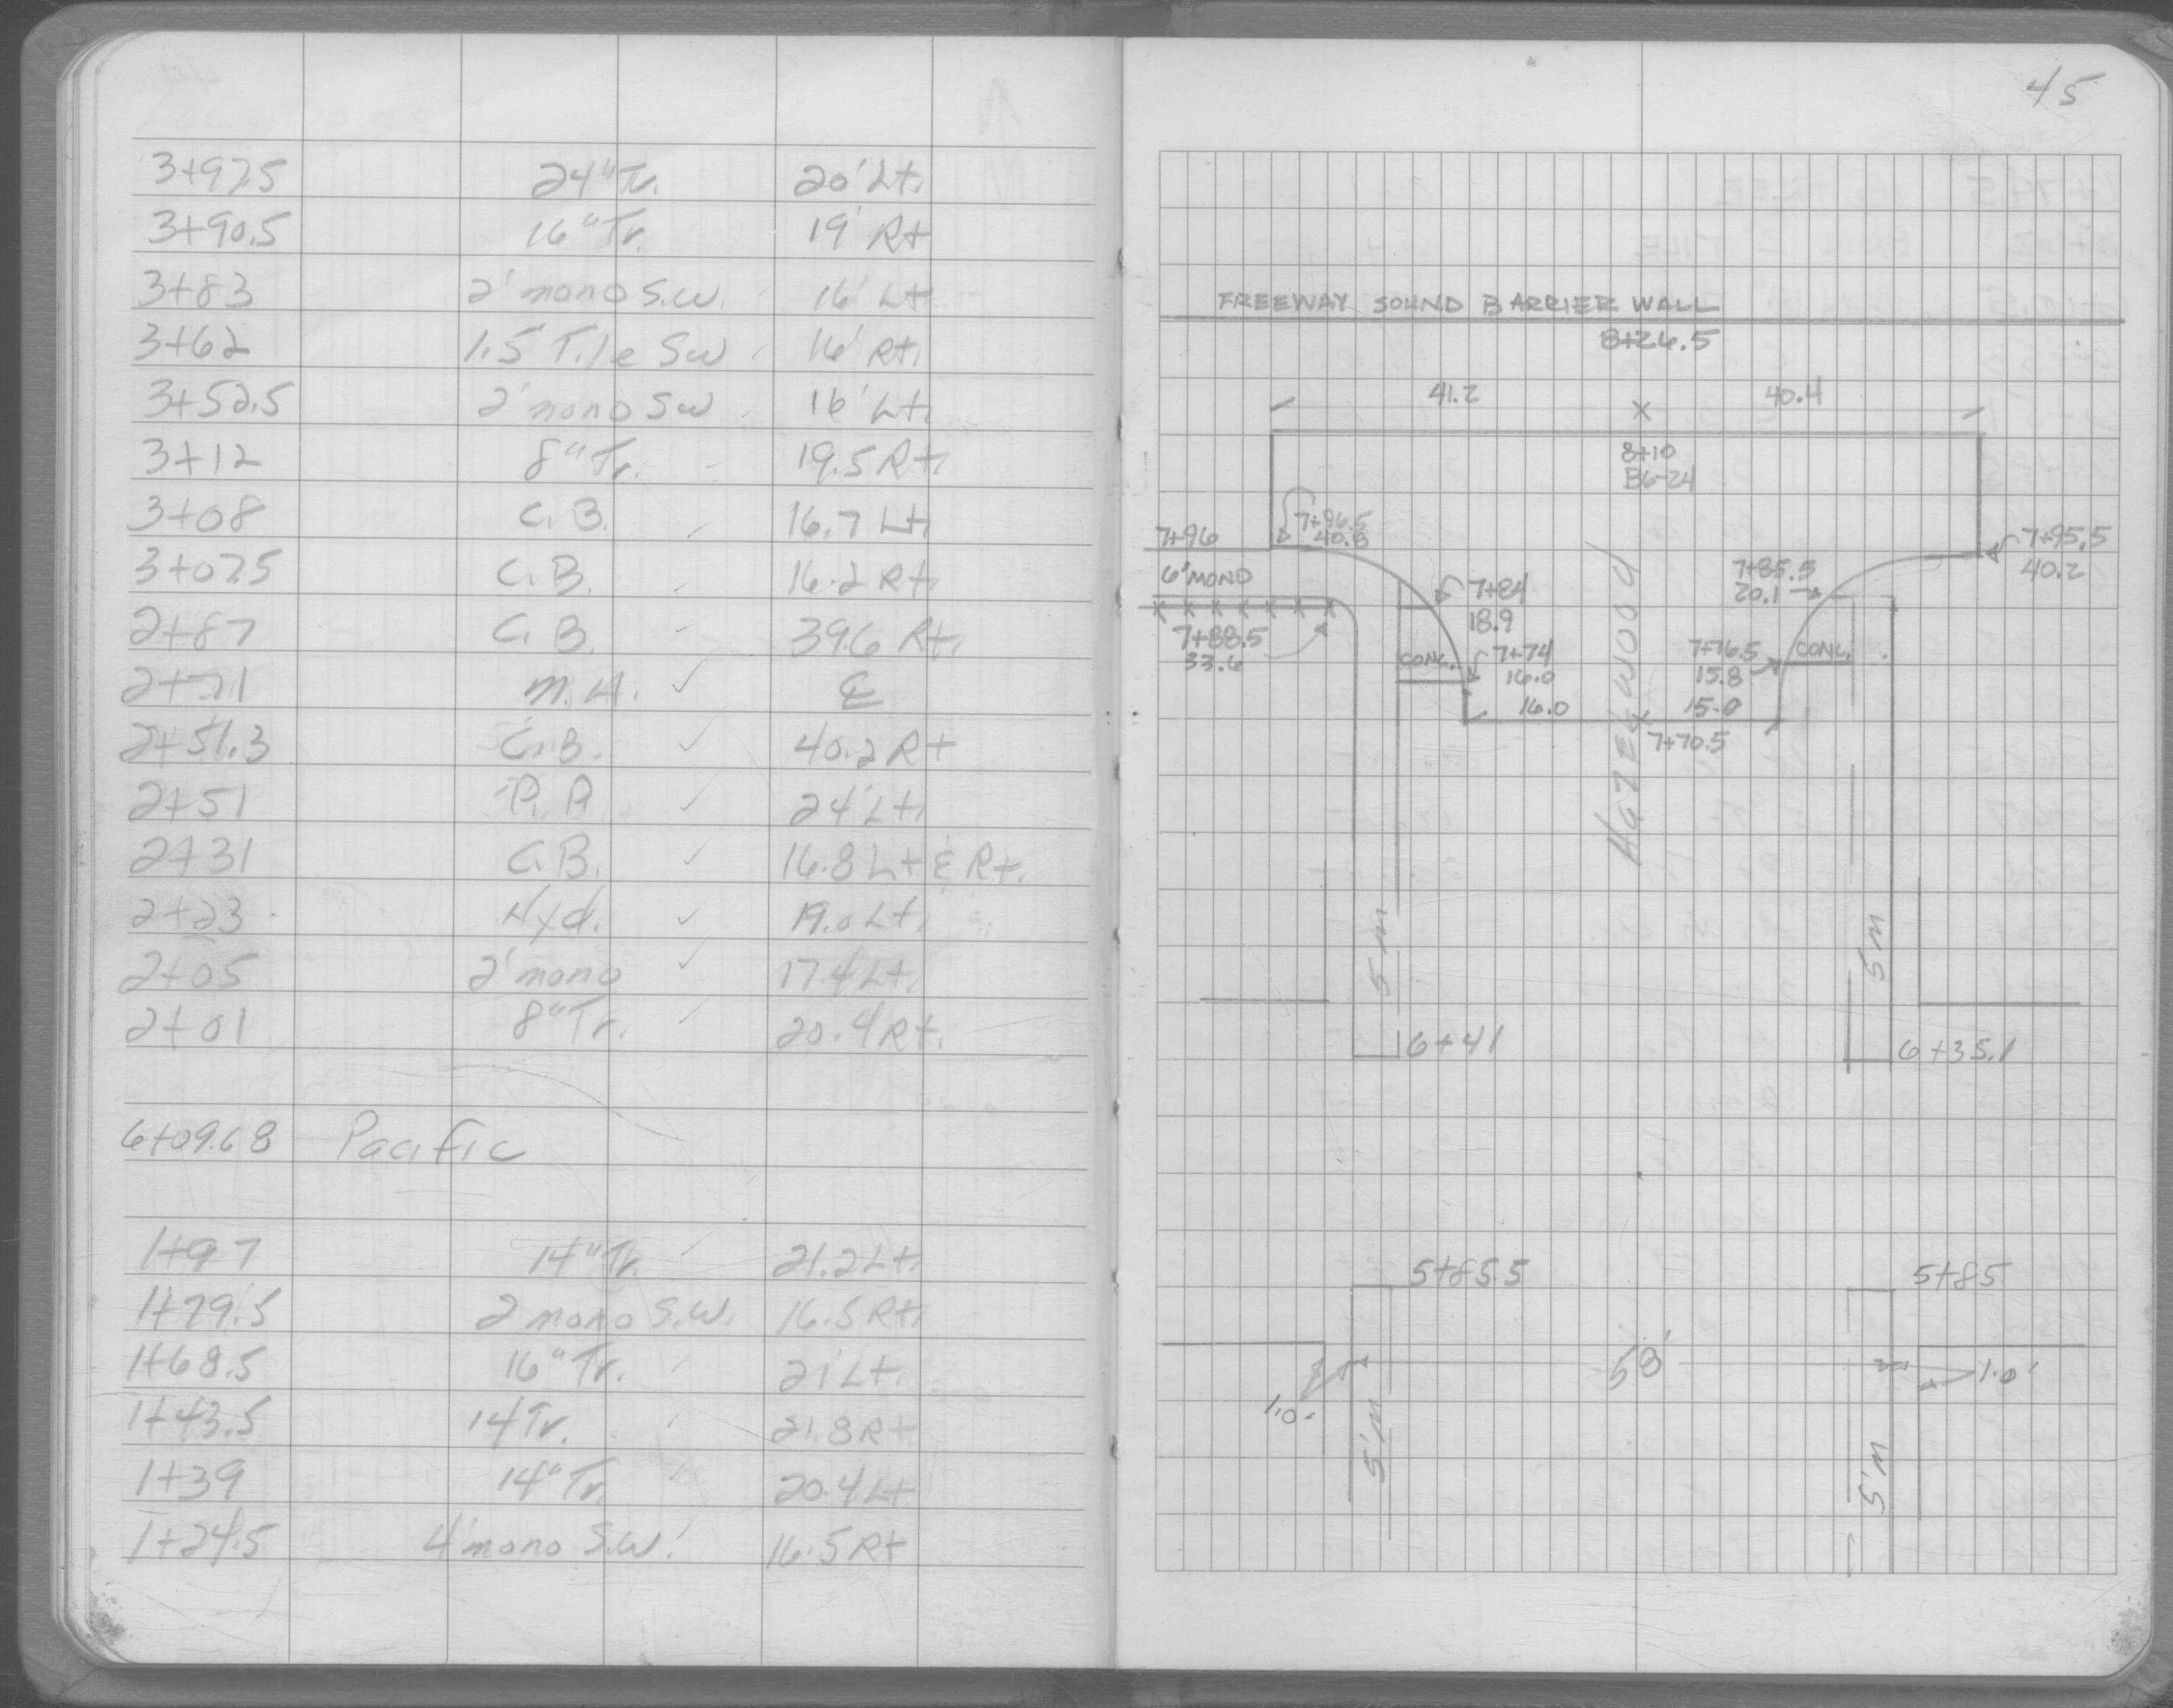 3+97.5 24"Tr. 20' Lt.
3+90.5 16"Tr. 19' Rt
3+83 2' mono S.W. 16' Lt
3+62 1.5 Tile SW 16' Rt.
3+52.5 2' mono SW 16' Lt.
3+12 8"Tr. 19.5 Rt.
3+08 C.B. 16.7 Lt
3+07.5 C.B. 16.2 Rt.
2+87 C.B. 39.6 Rt.
2+71 M.H. ✓ ℄
2+51.3 C.B. ✓ 40.2 Rt
2+51 P.P. ✓ 24' Lt.
2+31 C.B. ✓ 16.8 Lt & Rt.
2+23 Hyd. ✓ 19.0 Lt.
2+05 2' mono ✓ 17.4 Lt.
2+01 8"Tr. ✓ 20.4 Rt.
6+09.68 Pacific
1+97 14"Tr. 21.2 Lt.
1+79.5 2 mono S.W. 16.5 Rt.
1+68.5 16"Tr. 21' Lt.
1+43.5 14 Tr. 21.8 Rt
1+39 14"Tr. 20.4 Lt
1+24.5 4' mono S.W. 16.5 Rt
45
FREEWAY SOUND BARRIER WALL
8+26.5
41.2 X 40.4
8+10
B6-24
7+96
7+96.5
40.8
7+95.5
40.2
6' MONO
7+84
18.9
7+85.5
20.1
7+88.5
33.6
CONC.
7+74
16.0
16.0
7+76.5
15.8
15.0
CONC.
7+70.5
HAZELWOOD
5 M
5 M
6+41
6+35.1
5+85.5
5+85
58'
1.0'
1.0'
5' M
5' M